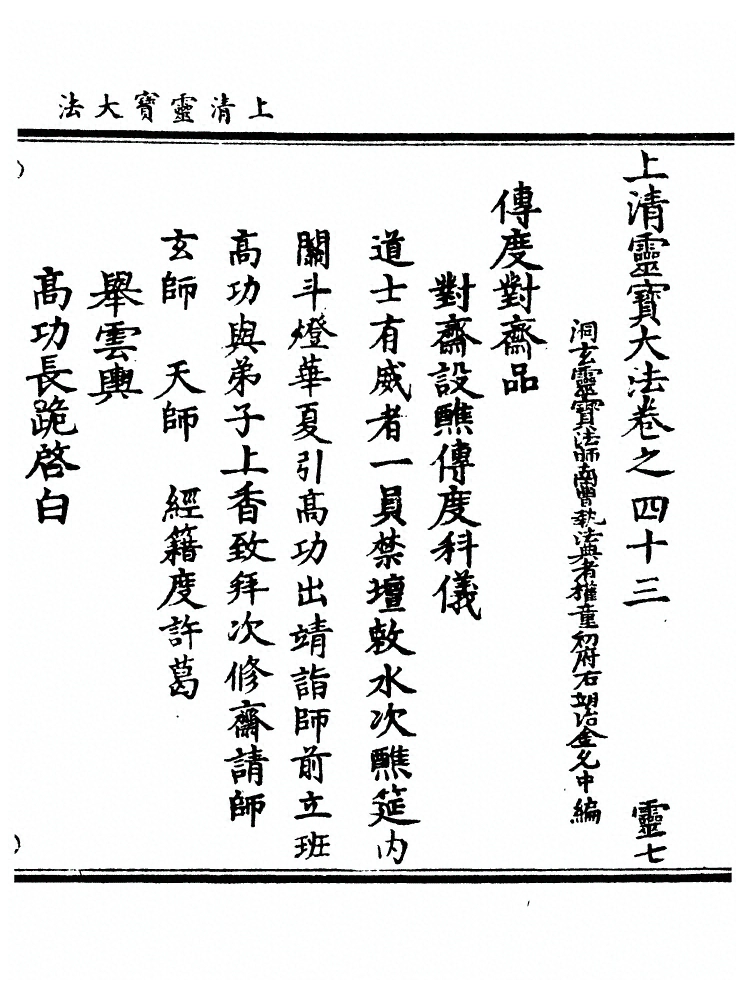 上清靈寶大法
上清靈寶大法卷之四十三 靈七
洞玄靈寶法師南曹執法典者權童初府右翊治金允中編
傳度對齋品
對齋設醮傳度科儀
道士有威者一員禁壇敕水次醮筵內
關斗燈華夏引高功出靖詣師前立班
高功與弟子上香致拜次修齋請師
玄師 天師 經籍度許葛
舉雲輿
高功長跪啓白